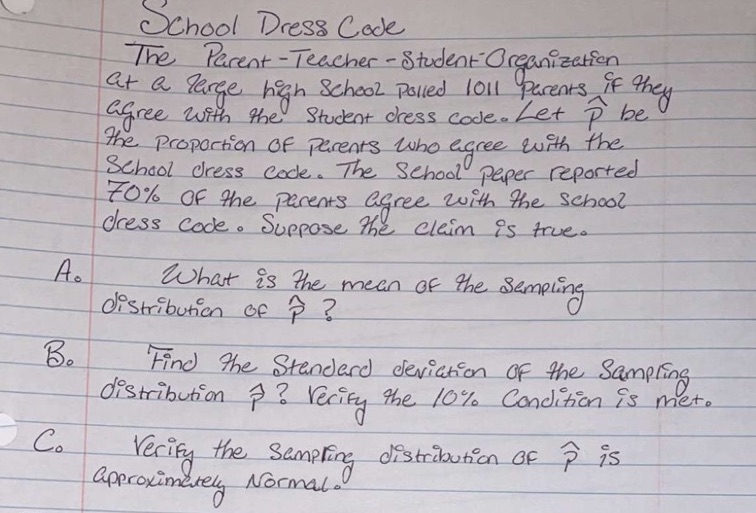 School Dress Code
The Parent-Teacher-Student-Organization
at a large high School Polled 1011 parents if they
agree with the Student dress code. Let p̂ be
the proportion of parents who agree with the
School dress code. The School paper reported
70% of the parents agree with the school
dress code. Suppose the claim is true.
A. What is the mean of the Sampling
distribution of p̂ ?
B. Find the Standard deviation of the Sampling
distribution p̂ ? Verify the 10% Condition is met.
C. Verify the Sampling distribution of p̂ is
approximately Normal.